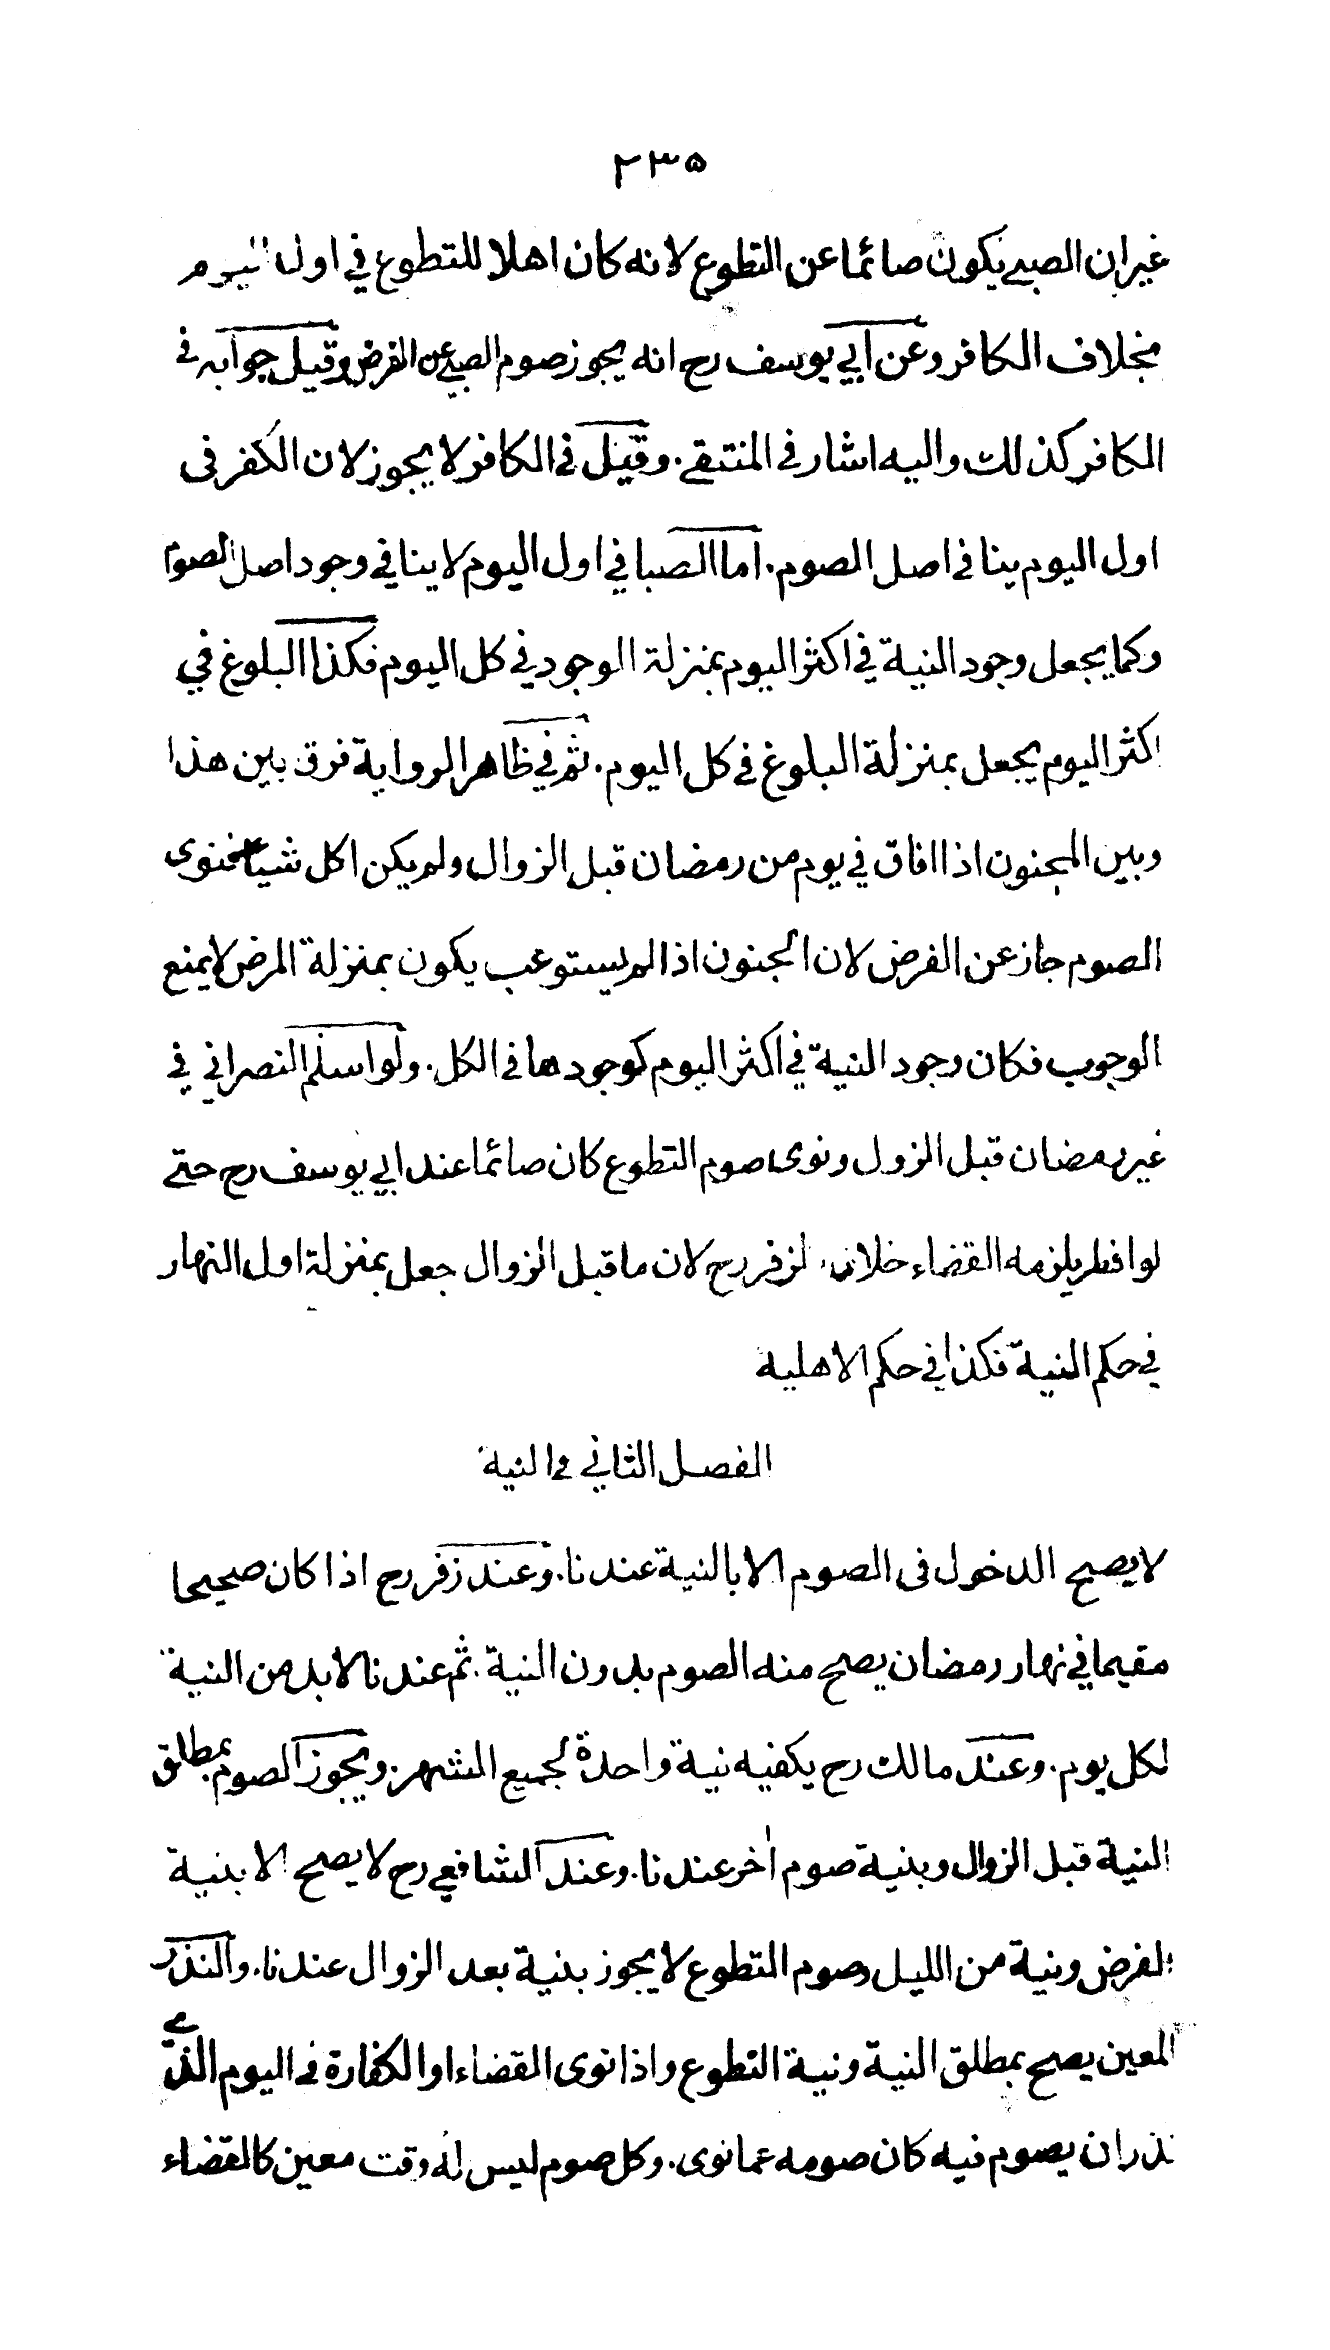 ٢٣٥
غير ان الصبي يكون صائما عن التطوع لانه كان اهلا للتطوع في اول اليوم
بخلاف الكافر وعن ابي يوسف رح انه يجوز صوم الصبي عن الفرض وقيل جوابه في
الكافر كذلك واليه اشار في المنتقى. وقيل في الكافر لا يجوز لان الكفر في
اول اليوم ينافي اصل الصوم. اما الصبا في اول اليوم لا ينافي وجود اصل الصوم
وكما يجعل وجود النية في اكثر اليوم بمنزلة الوجود في كل اليوم فكذا البلوغ في
اكثر اليوم يجعل بمنزلة البلوغ في كل اليوم. ثم في ظاهر الرواية فرق بين هذا
وبين المجنون اذا افاق في يوم من رمضان قبل الزوال ولم يكن اكل شيئا فنوى
الصوم جاز عن الفرض لان الجنون اذا لم يستوعب يكون بمنزلة المرض لا يمنع
الوجوب فكان وجود النية في اكثر اليوم كوجودها في الكل. ولو اسلم النصراني في
غير رمضان قبل الزول ونوى صوم التطوع كان صائما عند ابي يوسف رح حتى
لو افطر يلزمه القضاء خلافا لزفر رح لان ما قبل الزوال جعل بمنزلة اول النهار
في حكم النية فكذا في حكم الاهلية
الفصل الثاني في النية
لا يصح الدخول في الصوم الا بالنية عندنا. وعند زفر رح اذا كان صحيحا
مقيما في نهار رمضان يصح منه الصوم بدون النية. ثم عندنا لا بد من النية
لكل يوم. وعند مالك رح يكفيه نية واحدة لجميع الشهر. ويجوز الصوم بمطلق
النية قبل الزوال وبنية صوم اخر عندنا. وعند الشافعي رح لا يصح الا بنية
الفرض ونية من الليل وصوم التطوع لا يجوز بنية بعد الزوال عندنا. والنذر
المعين يصح بمطلق النية ونية التطوع واذا نوى القضاء او الكفارة في اليوم الذي
نذر ان يصوم فيه كان صومه عما نوى. وكل صوم ليس له وقت معين كالقضاء